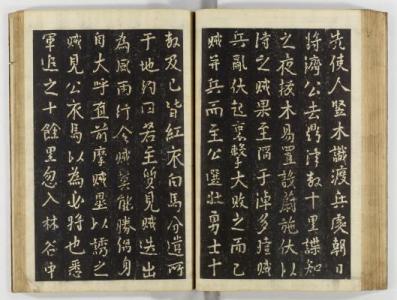 先使人豎木識渡兵處朝日
將濟公去鼎津數十里諜知
之夜拔木易置設蔚施伏以
待之賊果至陷于淖多殪賊
兵亂伏起裏擊大敗之而已
賊并兵而至公選壯勇士十
數及己皆紅衣白馬分遣所
于地約曰若主質見賊迭出
為風雨行令賊莫能勝偈身
自大呼直前摩賊壘以誘之
賊見公衣馬以為必將也悉
軍追之十餘里忽入林谷中